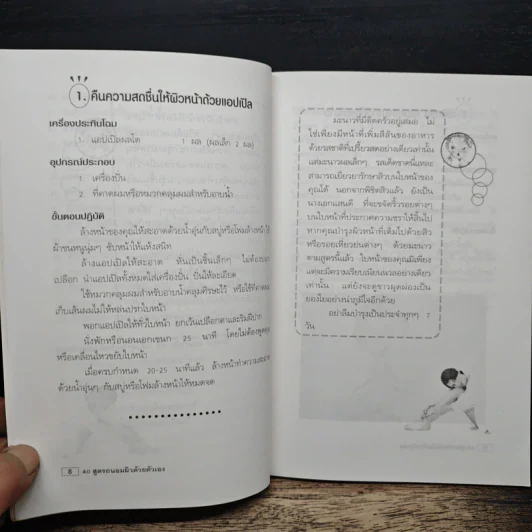 1. คืนความสดชื่นให้ผิวหน้าด้วยแอปเปิล
เครื่องประทินโฉม
1. แอปเปิลผลโต 1 ผล (ผลเล็ก 2 ผล)
อุปกรณ์ประกอบ
1. เครื่องปั่น
2. ที่คาดผมหรือหมวกคลุมผมสำหรับอาบน้ำ
ขั้นตอนปฏิบัติ
ล้างหน้าของคุณให้สะอาดด้วยน้ำอุ่นกับสบู่หรือโฟมล้างหน้า ใช้
ผ้าขนหนูนุ่มๆ ซับหน้าให้แห้งสนิท
ล้างแอปเปิลให้สะอาด หั่นเป็นชิ้นเล็กๆ ไม่ต้องปอก
เปลือก นำแอปเปิลทั้งหมดใส่เครื่องปั่น ปั่นให้ละเอียด
ใช้หมวกคลุมผมสำหรับอาบน้ำคลุมศีรษะไว้ หรือใช้ที่คาดผม
เก็บเส้นผมไม่ให้หล่นปรกใบหน้า
พอกแอปเปิลให้ทั่วใบหน้า ยกเว้นเปลือกตาและริมฝีปาก
นั่งพักหรือนอนเอกเขนก 25 นาที โดยไม่ต้องพูดคุย
หรือเคลื่อนไหวขยับใบหน้า
เมื่อครบกำหนด 20-25 นาทีแล้ว ล้างหน้าทำความสะอาด
ด้วยน้ำอุ่นๆ กับสบู่หรือโฟมล้างหน้าให้หมดจด
8 40 สูตรถนอมผิวด้วยตัวเอง
มะนาวที่มีติดครัวอยู่เสมอ ไม่
ใช่เพียงมีหน้าที่เพิ่มสีสันของอาหาร
ด้วยรสชาติที่เปรี้ยวสดอย่างเดียวเท่านั้น
แต่มะนาวผลเล็กๆ รสเด็ดขาดนี้แหละ
สามารถเยียวยารักษาสิวบนใบหน้าของ
คุณได้ นอกจากพิชิตสิวแล้ว ยังเป็น
นางเอกแสนดี ที่จะขจัดริ้วรอยต่างๆ
บนใบหน้าที่ประกาศความชราให้สิ้นไป
หากคุณบำรุงผิวหน้าที่เต็มไปด้วยสิว
หรือรอยเหี่ยวย่นต่างๆ ด้วยมะนาว
ตามสูตรนี้แล้ว ใบหน้าของคุณมิเพียง
แต่จะมีความเรียบเนียนนวลอย่างเดียว
เท่านั้น แต่ยังจะดูขาวผุดผ่องเป็น
ยองใยอย่างน่าภูมิใจอีกด้วย
อย่าลืมบำรุงเป็นประจำทุกๆ 7
วัน